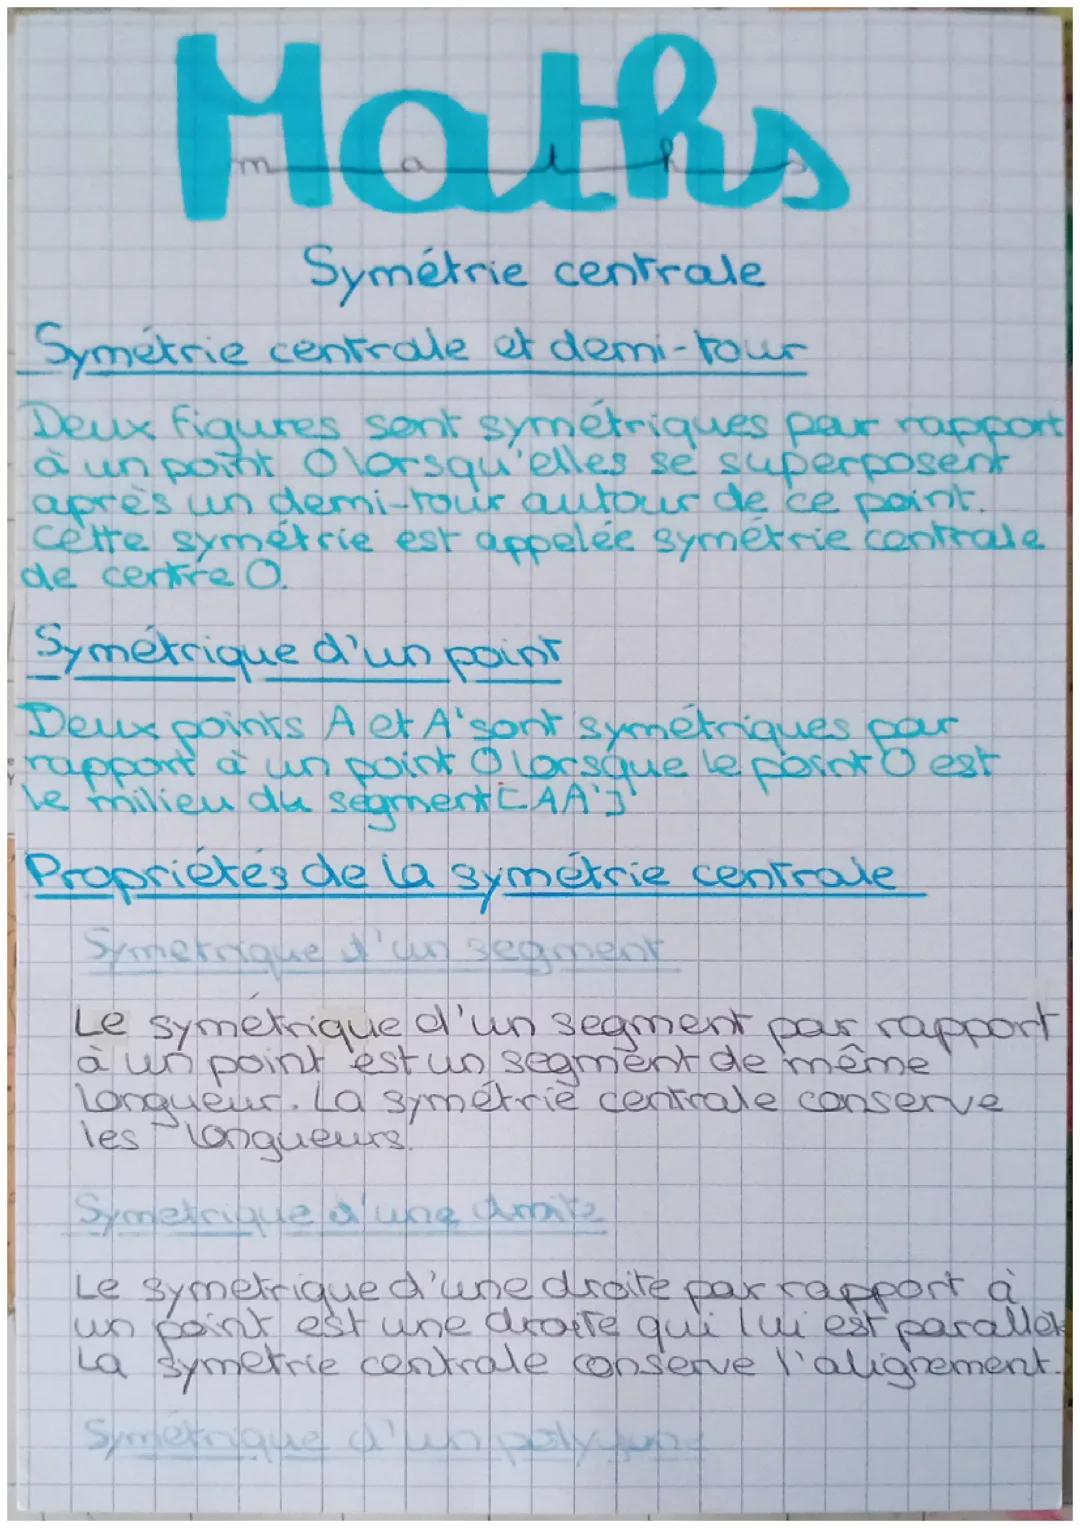 Maths
maths
Symétrie centrale
Symétrie centrale et demi-tour
Deux figures sont symétriques par rapport
à un point O lorsqu'elles se superposent
après un demi-tour autour de ce point.
Cette symétrie est appelée symétrie centrale
de centre O.
Symétrique d'un point
Deux points A et A' sont symétriques par
rapport à un point O lorsque le point O est
le milieu du segment [AA']
Propriétés de la symétrie centrale
Symetrique d'un segment
Le symétrique d'un segment par rapport
à un point est un segment de même
longueur. La symétrie centrale conserve
les longueurs.
Symetrique d'une droite
Le symetrique d'une droite par rapport à
un point est une droite qui lui est parallèle
La symetrie centrale conserve l'alignement.
Symétrique d'un polygone